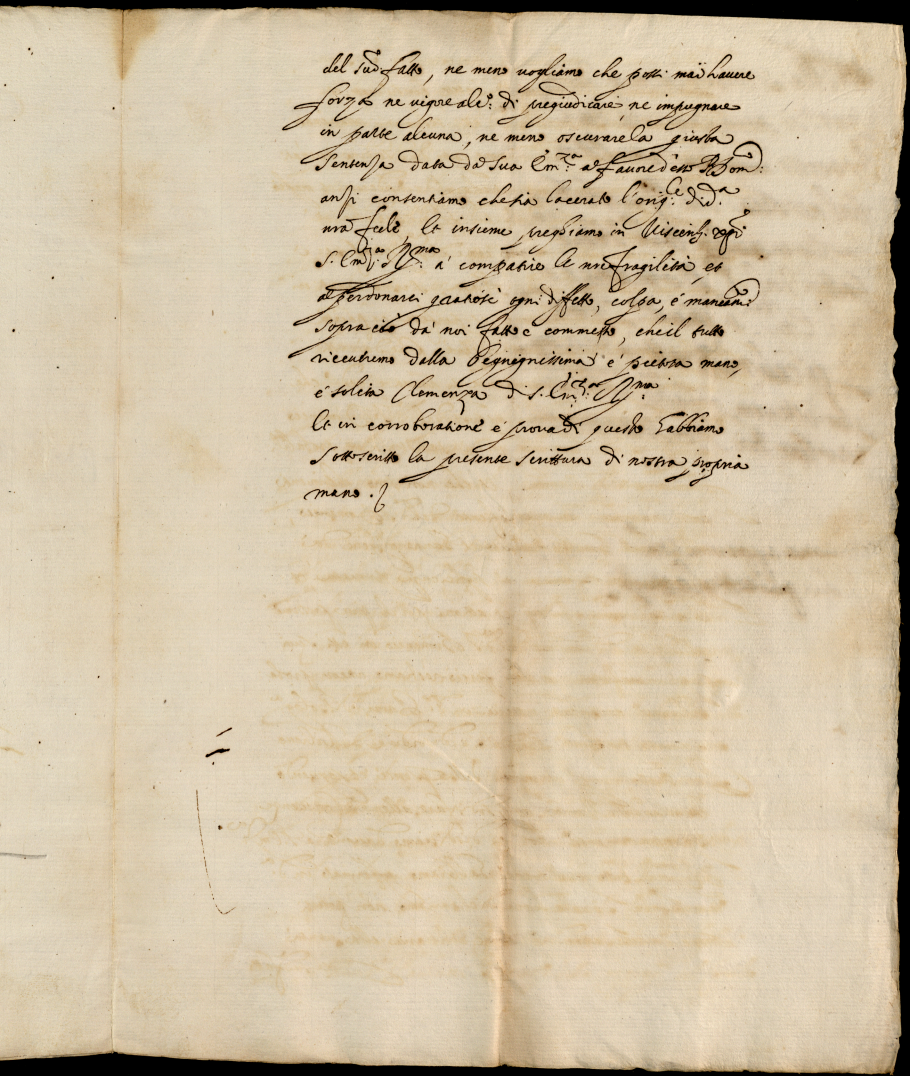 del sud.º fatto, ne meno vogliamo che possi mai havere
forza ne vigore alc.º di pregiudicare, ne impugnare
in parte alcuna, ne meno oscurare la giusta
Sentenza data da Sua Em.za a favore d'esso
anzi consentiamo che sia lacerato l'orig.le di d.a
nra fede, Et insieme preghiamo in
S. Em.za R.ma a' compatire le nre fragilità, et
a perdonarci ogni diffetto, colpa, é mancam.to
sopra ciò da noi fatto e commesso, che il tutto
riceveremo dalla Begnignissima é pietosa mano,
é solita Clemenza di S. Em.za R.ma
Et in corroboratione é prova di questo habbiamo
sottoscritto la presente scrittura di nostra propria
mano.